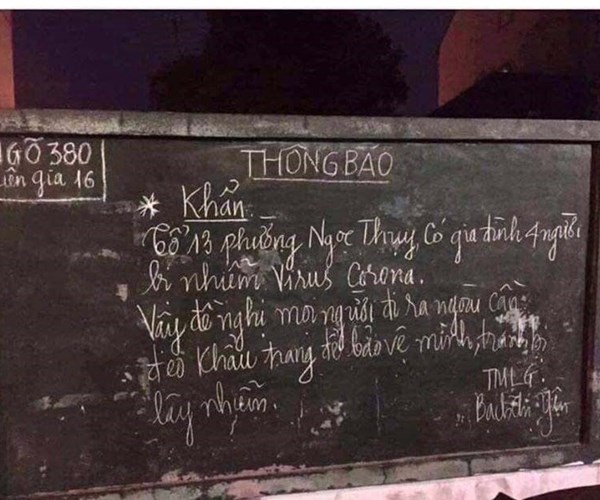 GÕ 380
iên gia 16
THÔNG BÁO
* Khẩn
Tổ 13 phường Ngọc Thụy, Có gia đình 4 người
bị nhiễm Virus Corona.
Vậy đề nghị mọi người đi ra ngoài cần
đeo khẩu trang để bảo vệ mình, tránh bị
lây nhiễm.
TMLG.
Bạch Yến